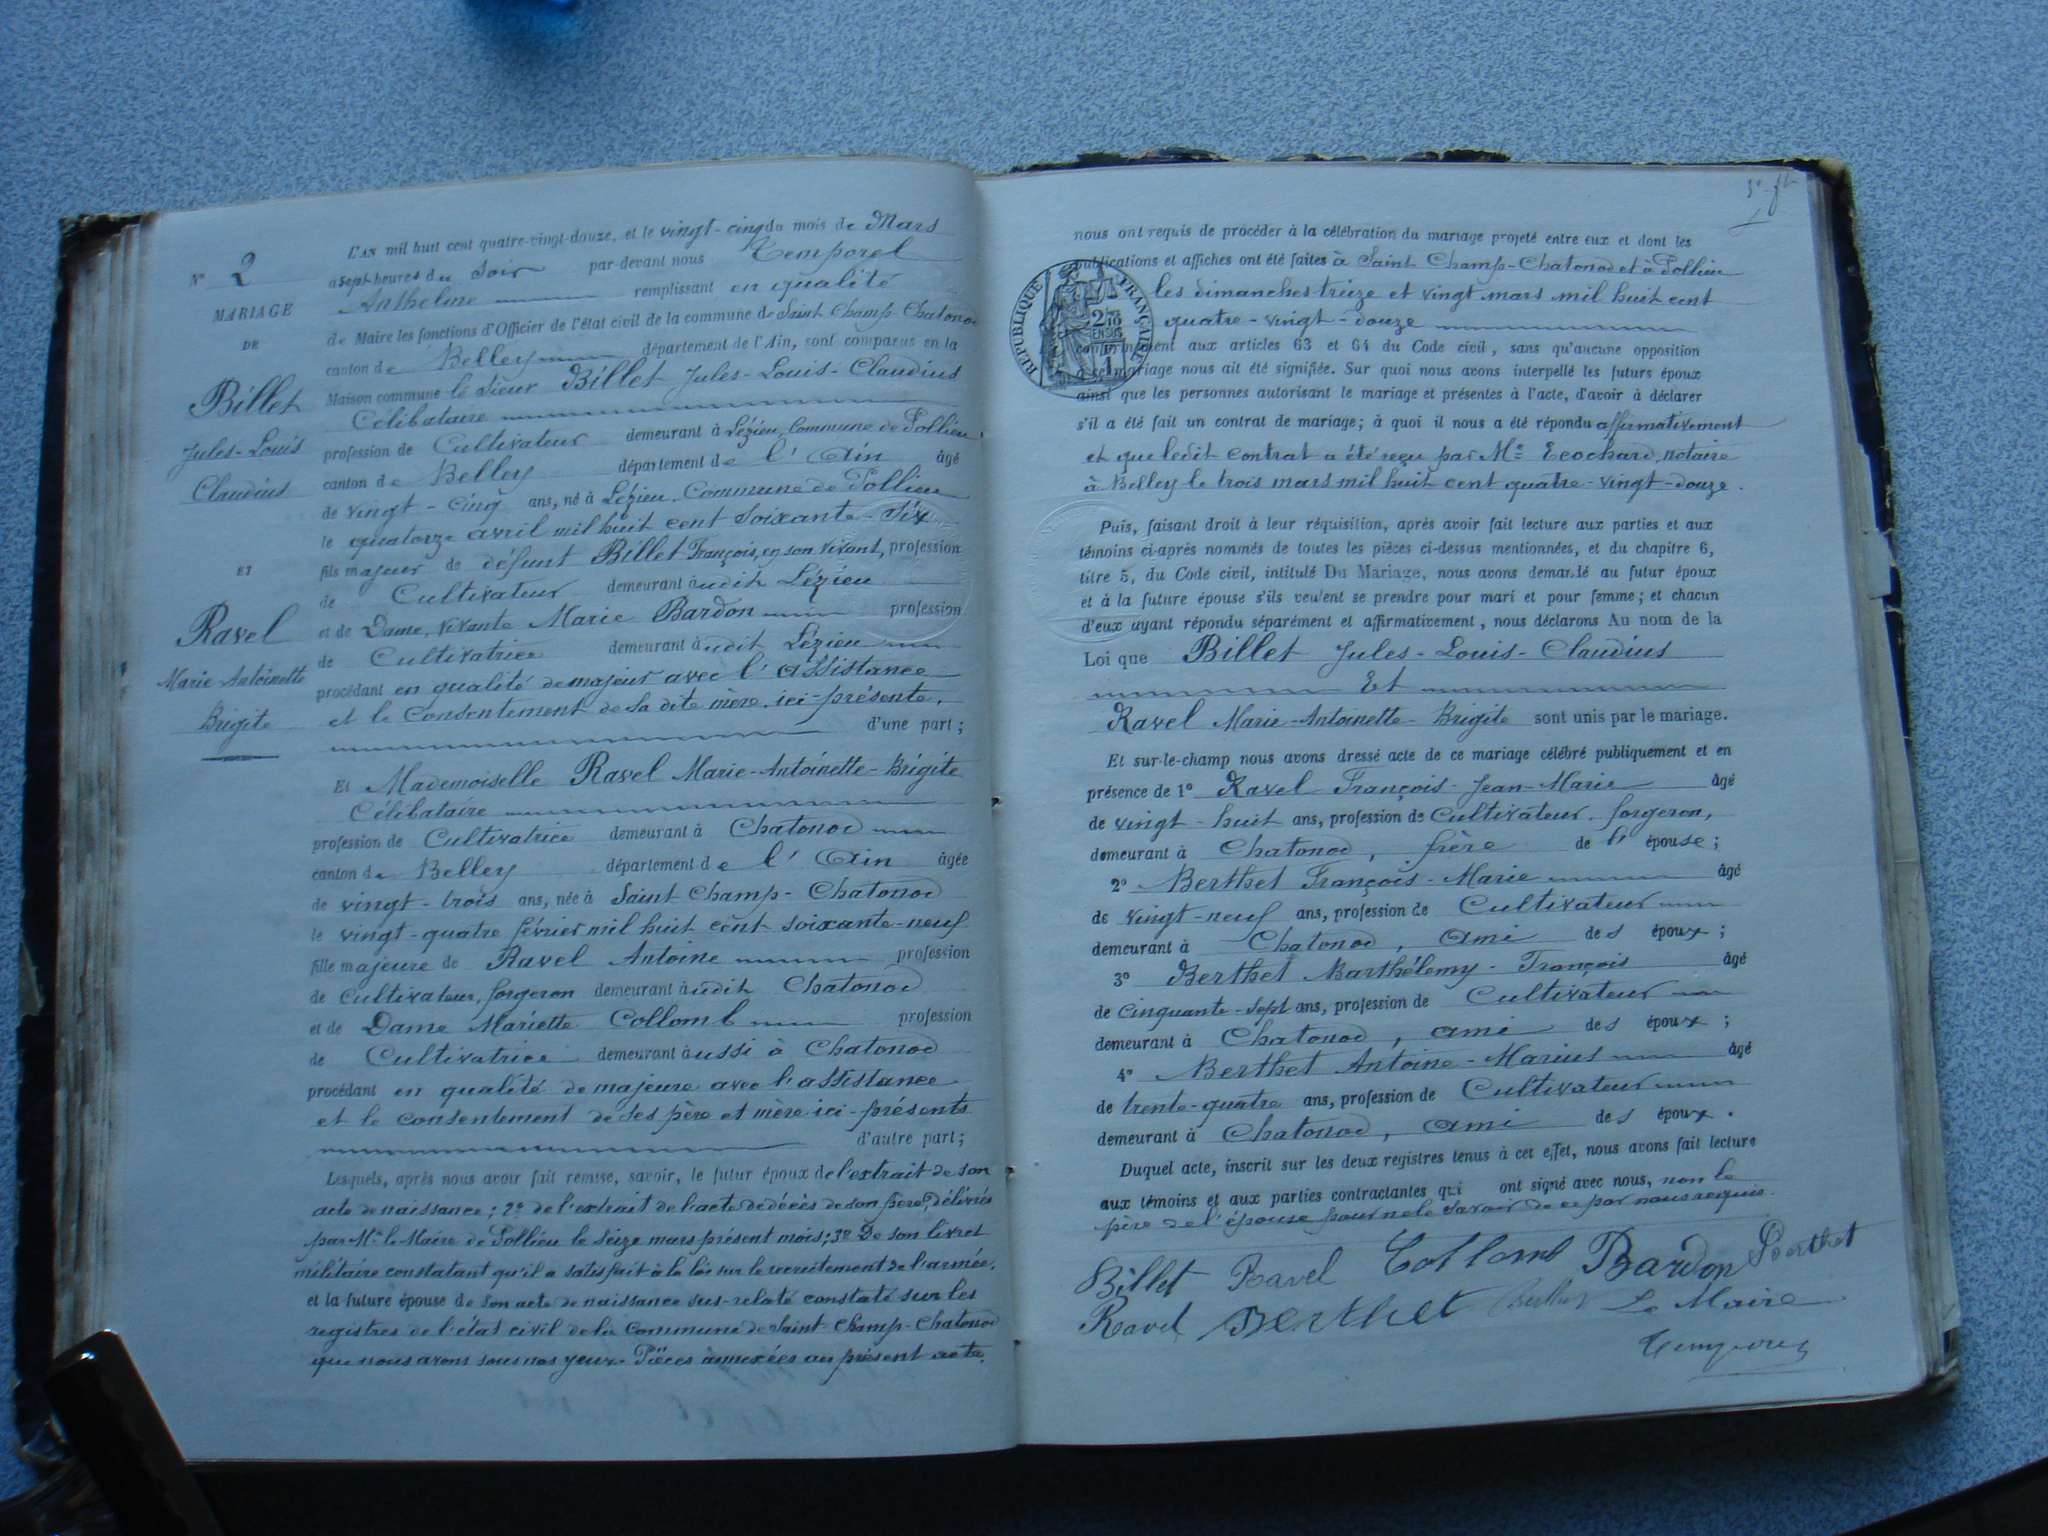 N° 2
MARIAGE
DE
Billet
Jules-Louis
Claudius
ET
Ravel
Marie Antoinette
Brigite
L'AN mil huit cent quatre-vingt-douze, et le vingt-cinq du mois de Mars
a sept heures du Soir par devant nous Temporel
Anthelme remplissant en qualité
de Maire les fonctions d'Officier de l'état civil de la commune de Saint Champ-Chatonod
canton de Belley département de l'Ain, sont comparus en la
Maison commune le Sieur Billet Jules-Louis-Claudius
Célibataire
profession de Cultivateur demeurant à Lézieu, Commune de Pollieu
canton de Belley département de l'Ain âgé
de vingt-cinq ans, né à Lézieu, Commune de Pollieu
le quatorze avril mil huit cent soixante-six
fils majeur de défunt Billet François, en son vivant, profession
de Cultivateur demeurant audit Lézieu
et de Dame, vivante Marie Bardon profession
de Cultivatrice demeurant audit Lézieu
procédant en qualité de majeur avec l'assistance
et le consentement de sa dite mère, ici-présente,
d'une part;
Et Mademoiselle Ravel Marie-Antoinette-Brigite
Célibataire
profession de Cultivatrice demeurant à Chatonod
canton de Belley département de l'Ain âgée
de vingt-trois ans, née à Saint Champ-Chatonod
le vingt-quatre février mil huit cent soixante-neuf
fille majeure de Ravel Antoine profession
de Cultivateur, forgeron demeurant audit Chatonod
et de Dame Mariette Collomb profession
de Cultivatrice demeurant aussi à Chatonod
procédant en qualité de majeure avec l'assistance
et le consentement de ses père et mère ici-présents
d'autre part;
Lesquels, après nous avoir fait remise, savoir, le futur époux de l'extrait de son
acte de naissance; 2° de l'extrait de l'acte de décès de son père, délivrés
par Mr le Maire de Pollieu le seize mars présent mois; 3° De son livret
militaire constatant qu'il a satisfait à la loi sur le recrutement de l'armée,
et la future épouse de son acte de naissance sus-relaté constaté sur les
registres de l'état civil de la Commune de Saint-Champ-Chatonod
que nous avons sous nos yeux. Pièces annexées au présent acte,
nous ont requis de procéder à la célébration du mariage projeté entre eux et dont les
publications et affiches ont été faites à Saint Champ-Chatonod et à Pollieu
les dimanches treize et vingt mars mil huit cent
quatre-vingt-douze
RÉPUBLIQUE FRANÇAISE
conformément aux articles 63 et 64 du Code civil, sans qu'aucune opposition
a ce mariage nous ait été signifiée. Sur quoi nous avons interpellé les futurs époux
ainsi que les personnes autorisant le mariage et présentes à l'acte, d'avoir à déclarer
s'il a été fait un contrat de mariage; à quoi il nous a été répondu affirmativement
et que ledit contrat a été reçu par Me Ecochard, notaire
à Belley le trois mars mil huit cent quatre-vingt-douze.
Puis, faisant droit à leur réquisition, après avoir fait lecture aux parties et aux
témoins ci-après nommés de toutes les pièces ci-dessus mentionnées, et du chapitre 6,
titre 5, du Code civil, intitulé Du Mariage, nous avons demandé au futur époux
et à la future épouse s'ils veulent se prendre pour mari et pour femme; et chacun
d'eux ayant répondu séparément et affirmativement, nous déclarons Au nom de la
Loi que Billet Jules-Louis-Claudius
Et
Ravel Marie-Antoinette-Brigite sont unis par le mariage.
Et sur-le-champ nous avons dressé acte de ce mariage célébré publiquement et en
présence de 1° Ravel François-Jean-Marie âgé
de vingt-huit ans, profession de Cultivateur, forgeron,
demeurant à Chatonod, frère de l'épouse;
2° Berthet François-Marie âgé
de vingt-neuf ans, profession de Cultivateur
demeurant à Chatonod, ami des époux;
3° Berthet Barthélemy-François âgé
de cinquante-sept ans, profession de Cultivateur
demeurant à Chatonod, ami des époux;
4° Berthet Antoine-Marius âgé
de trente-quatre ans, profession de Cultivateur
demeurant à Chatonod, ami des époux.
Duquel acte, inscrit sur les deux registres tenus à cet effet, nous avons fait lecture
aux témoins et aux parties contractantes qui ont signé avec nous, non le
père de l'épouse pour ne le savoir de ce par nous requis.
Billet Ravel Collomb Bardon Berthet
Ravel Berthet Berthet Le Maire
Temporel